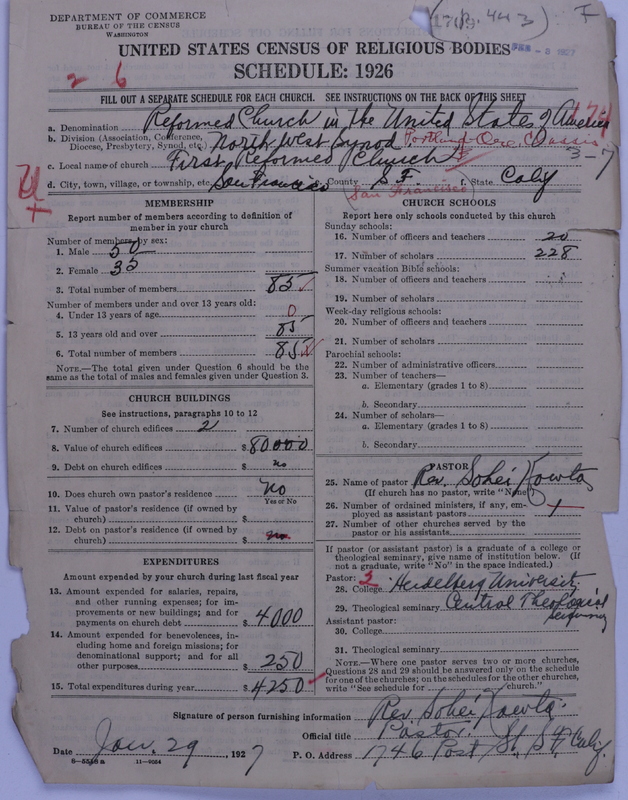 DEPARTMENT OF COMMERCE
BUREAU OF THE CENSUS
WASHINGTON
UNITED STATES CENSUS OF RELIGIOUS BODIES
SCHEDULE: 1926
2 6
FILL OUT A SEPARATE SCHEDULE FOR EACH CHURCH. SEE INSTRUCTIONS ON THE BACK OF THIS SHEET
a. Denomination Reformed Church in the United States of America
b. Division (Association, Conference, Diocese, Presbytery, Synod, etc.) North West Synod Portland-Ore. Classis
c. Local name of church First Reformed Church 3-7
d. City, town, village, or township, etc. San Francisco County S.F. f. State Caly
San Francisco
MEMBERSHIP
Report number of members according to definition of
member in your church
Number of members by sex:
1. Male 50
2. Female 35
3. Total number of members 85
Number of members under and over 13 years old:
4. Under 13 years of age 0
5. 13 years old and over 85
6. Total number of members 85
NOTE.—The total given under Question 6 should be
same as the total of males and females given under Question 3.
CHURCH BUILDINGS
See instructions, paragraphs 10 to 12
7. Number of church edifices 2
8. Value of church edifices $ 80000
9. Debt on church edifices $ no
10. Does church own pastor's residence No
Yes or No
11. Value of pastor's residence (if owned by
church) $
12. Debt on pastor's residence (if owned by
church) $ no
EXPENDITURES
Amount expended by your church during last fiscal year
13. Amount expended for salaries, repairs,
and other running expenses; for im-
provements or new buildings; and for
payments on church debt $ 4000
14. Amount expended for benevolences, in-
cluding home and foreign missions; for
denominational support; and for all
other purposes $ 250
15. Total expenditures during year $ 4250
CHURCH SCHOOLS
Report here only schools conducted by this church
Sunday schools:
16. Number of officers and teachers 20
17. Number of scholars 228
Summer vacation Bible schools:
18. Number of officers and teachers
19. Number of scholars
Week-day religious schools:
20. Number of officers and teachers
21. Number of scholars
Parochial schools:
22. Number of administrative officers
23. Number of teachers—
a. Elementary (grades 1 to 8)
b. Secondary
24. Number of scholars—
a. Elementary (grades 1 to 8)
b. Secondary
PASTOR
25. Name of pastor Rev. Sohei Kowta
(If church has no pastor, write "None")
26. Number of ordained ministers, if any, em-
ployed as assistant pastors
27. Number of other churches served by the
pastor or his assistants
If pastor (or assistant pastor) is a graduate of a college or
theological seminary, give name of institution below. (If
not a graduate, write "No" in the space indicated.)
Pastor: 3
28. College Heidelberg University
29. Theological seminary Central Theological Seminary
Assistant pastor:
30. College
31. Theological seminary
NOTE.—Where one pastor serves two or more churches,
Questions 28 and 29 should be answered only on the schedule
for one of the churches; on the schedules for the other churches,
write "See schedule for church."
Signature of person furnishing information Rev. Sohei Kowta.
Official title Pastor.
Date Jan. 29, 1927 P. O. Address 1746 Post St. S.F. Caly.
8—5518a 11—9054